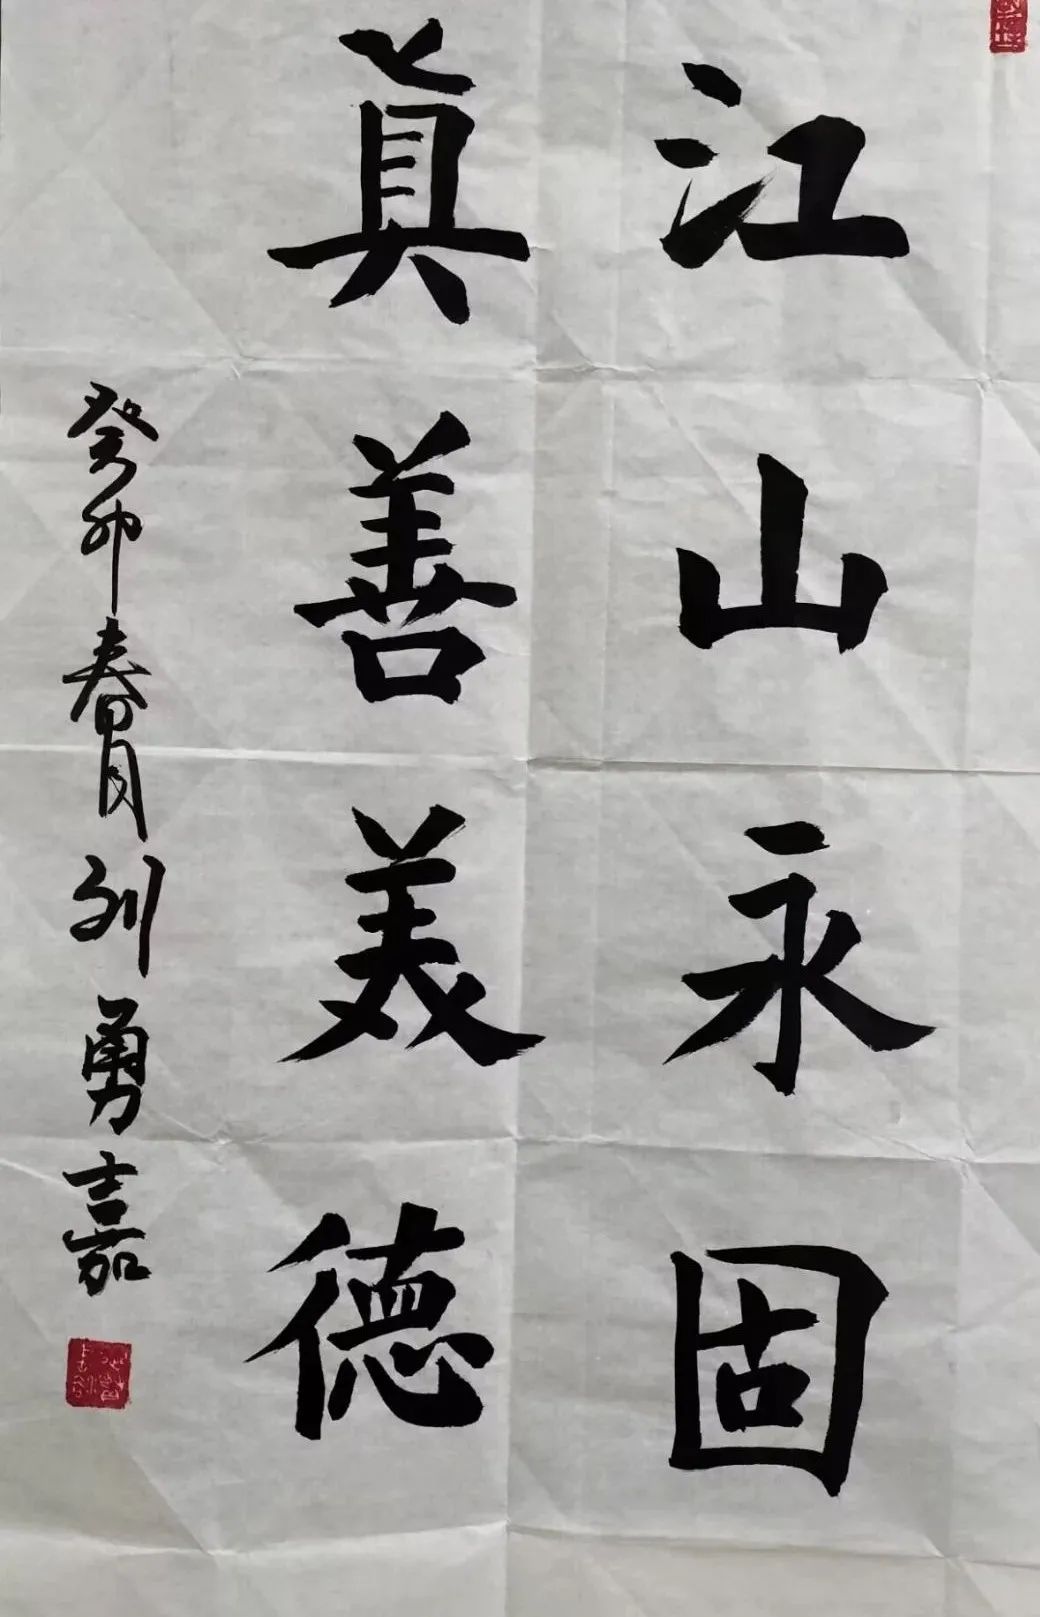 江山永固
真善美德
癸卯春月刘勇嘉